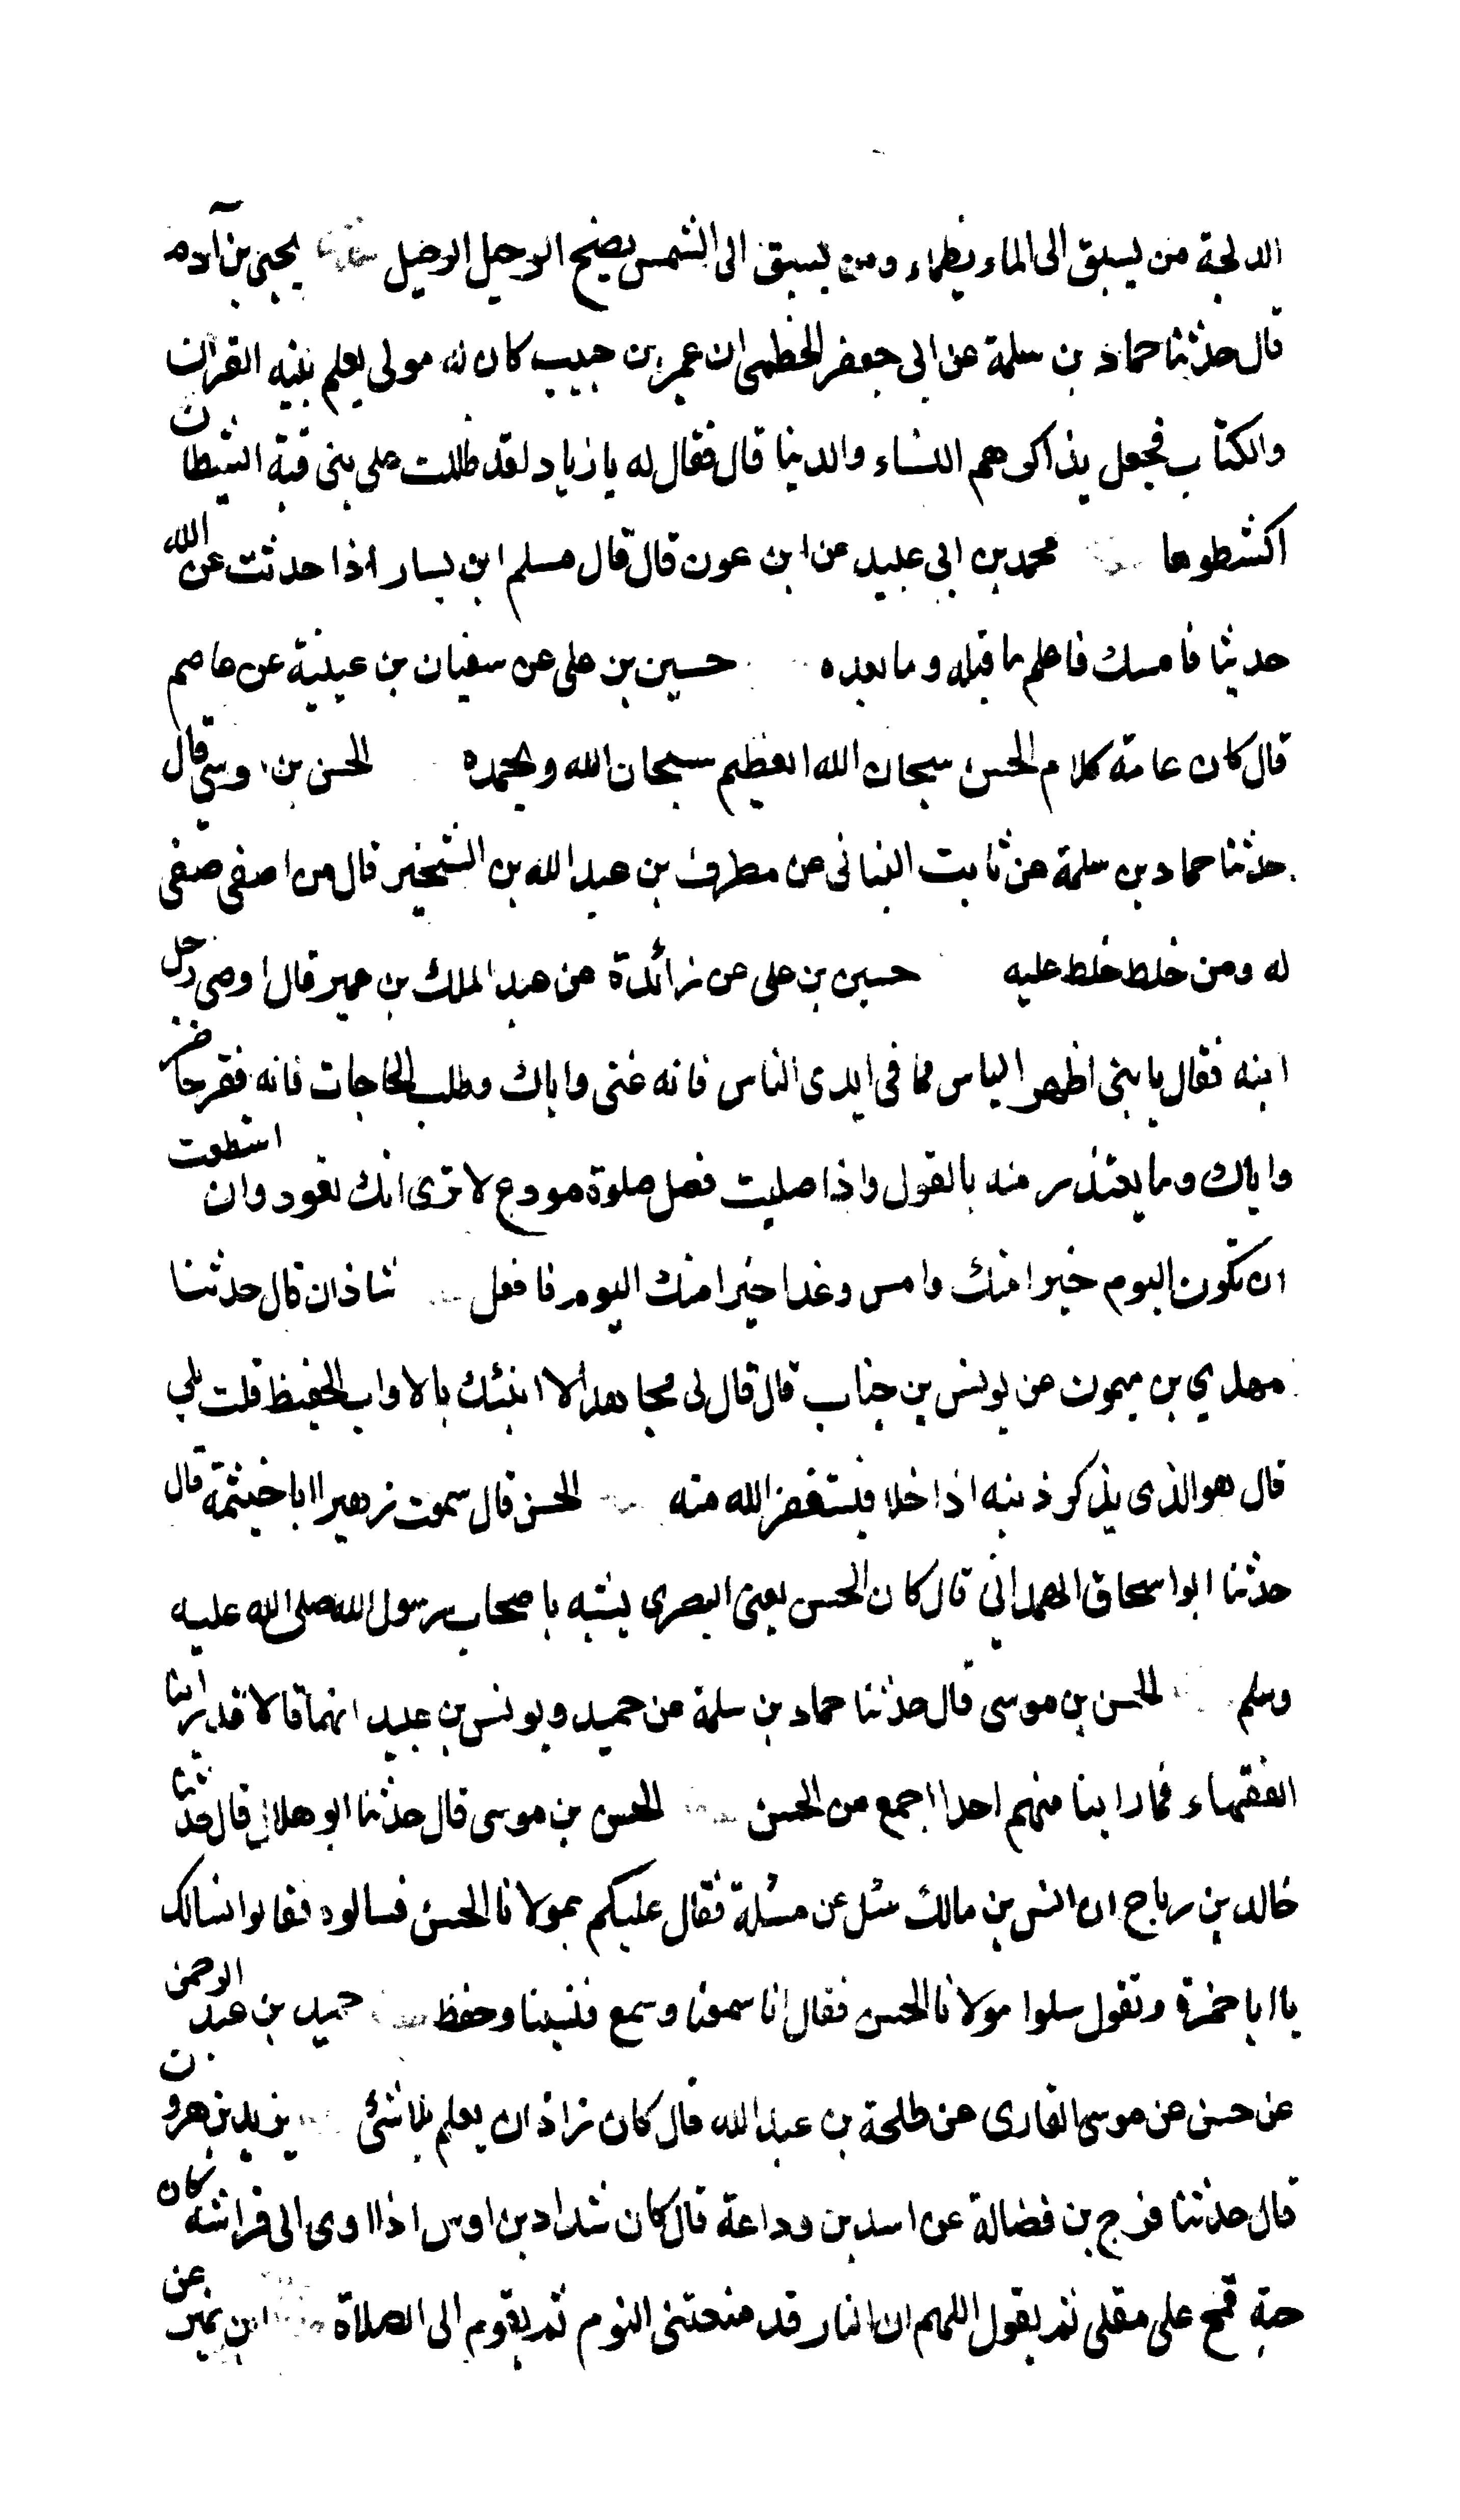 الدلجة من يسبق الى الماء يظماء ومن يسبق الى الشمس يضح الرحيل الرحيل يحيى بن آدم
قال حدثنا حماد بن سلمة عن ابى جعفر الخطمى ان عمر بن حبيب كان له مولى يعلم بنيه القران
والكتاب فجعل يذاكرهم النساء والدنيا قال فقال له يا زياد لقد ظللت على بنى قبة الشيطان
اكشطوها محمد بن ابى عبيد عن ابن عون قال قال مسلم ابن يسار اذا حدثت عن الله
حديثا فامسك فاعلم ما قبله وما بعده حسين بن على عن سفيان بن عيينة عن عاصم
قال كان عامة كلام الحسن سبحان الله العظيم سبحان الله وبحمده الحسن بن موسى قال
حدثنا حماد بن سلمة عن ثابت البنانى عن مطرف بن عبد الله بن الشخير قال من اصفى صفى
له ومن خلط خلط عليه حسين بن على عن زائدة عن عبد الملك بن عمير قال اوصى رجل
ابنه فقال يا بنى اظهر الياس مما فى ايدى الناس فانه غنى واياك وطلب الحاجات فانه فقر حاضر
واياك وما يعتذر منه بالقول واذا صليت فصل صلوة مودع لا ترى انك تعود وان استطعت
ان تكون اليوم خيرا منك وامس وغدا خيرا منك اليوم فافعل شاذان قال حدثنا
مهدي بن ميمون عن يونس بن خباب قال قال لى مجاهد الا انبئك بالاواب الحفيظ قلت بلى
قال هو الذى يذكر ذنبه اذا خلا فيستغفر الله منه الحسن قال سمعت زهيرا ابا خيثمة قال
حدثنا ابو اسحاق الهمدانى قال كان الحسن يعنى البصرى يشبه باصحاب رسول الله صلى الله عليه
وسلم الحسن بن موسى قال حدثنا حماد بن سلمة عن حميد ويونس بن عبيد انهما قالا قد راينا
الفقهاء فما راينا منهم احدا اجمع من الحسن الحسن بن موسى قال حدثنا ابو هلال قال حدثنا
خالد بن رباح ان انس بن مالك سئل عن مسئلة فقال عليكم بمولانا الحسن فسالوه فقالوا نسالك
يا ابا حمزة وتقول سلوا مولانا الحسن فقال انا سمعنا وسمع فنسينا وحفظ حميد بن عبد الرحمن
عن حسن عن موسى القارى عن طلحة بن عبد الله قال كان زاذان يعلم بلا شئ يزيد بن هرون
قال حدثنا فرج بن فضالة عن اسد بن وداعة قال كان شداد بن اوس اذا اوى الى فراشه كان
حبة قمح على مقلى ثم يقول اللهم ان النار قد منعتنى النوم ثم يقوم الى الصلاة ابن نمير عن